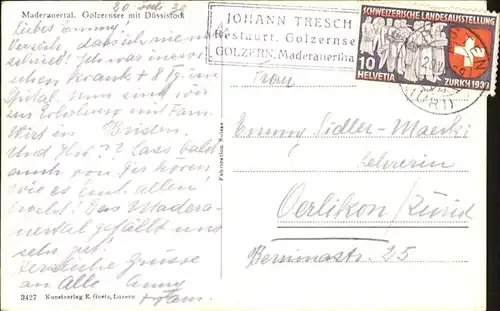 Maderanertal. Golzernsee mit Düssistock
20 Juli 39
Liebes Emmy!
Verzeih, dass ich nie
schrieb! Ich war
schen Verank + 8 Tg. im
Spital. Nun sind wir
zur Erholung mit Fam.
Wirt in
Und Ihr? Lass bald
auch von Dir hören,
wie es Euch allen
geht! Das Madera-
nertal gefällt uns
sehr gut!
Herzliche Grüsse
an Alle Anny
+ Fam.
3427 Kunstverlag E. Goetz, Luzern
Fabrication Suisse
JOHANN TRESCH
Restaurt. Golzernsee
GOLZERN, Maderanertha
SCHWEIZERISCHE LANDESAUSSTELLUNG
10
HELVETIA
ZÜRICH 1939
(URI)
Frau
Emmy Sidler-Maerki
Lehrerin
Oerlikon/Zürich
Berninastr. 25